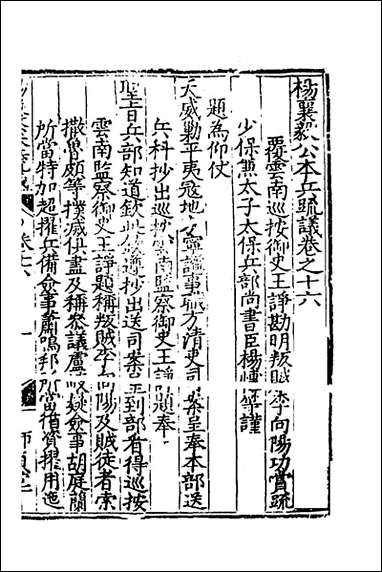 楊襄毅公本兵疏議卷之十六
覆雲南巡按御史王諍勘明叛賊李向陽功賞疏
少保兼太子太保兵部尚書臣楊 等謹
題為仰仗
天威勦平夷寇地方寧謐事職方清吏司案呈奉本部送
兵科抄出巡按雲南監察御史王諍題奉
聖旨兵部知道欽此欽遵抄出送司案呈到部看得巡按
雲南監察御史王諍題稱叛賊李向陽及賊徒者索
撒魯頗等撲滅俱盡及稱叅議盧岐嶷僉事胡庭蘭
所當特加超擢兵備僉事蕭鳴邦所當積資擢用進